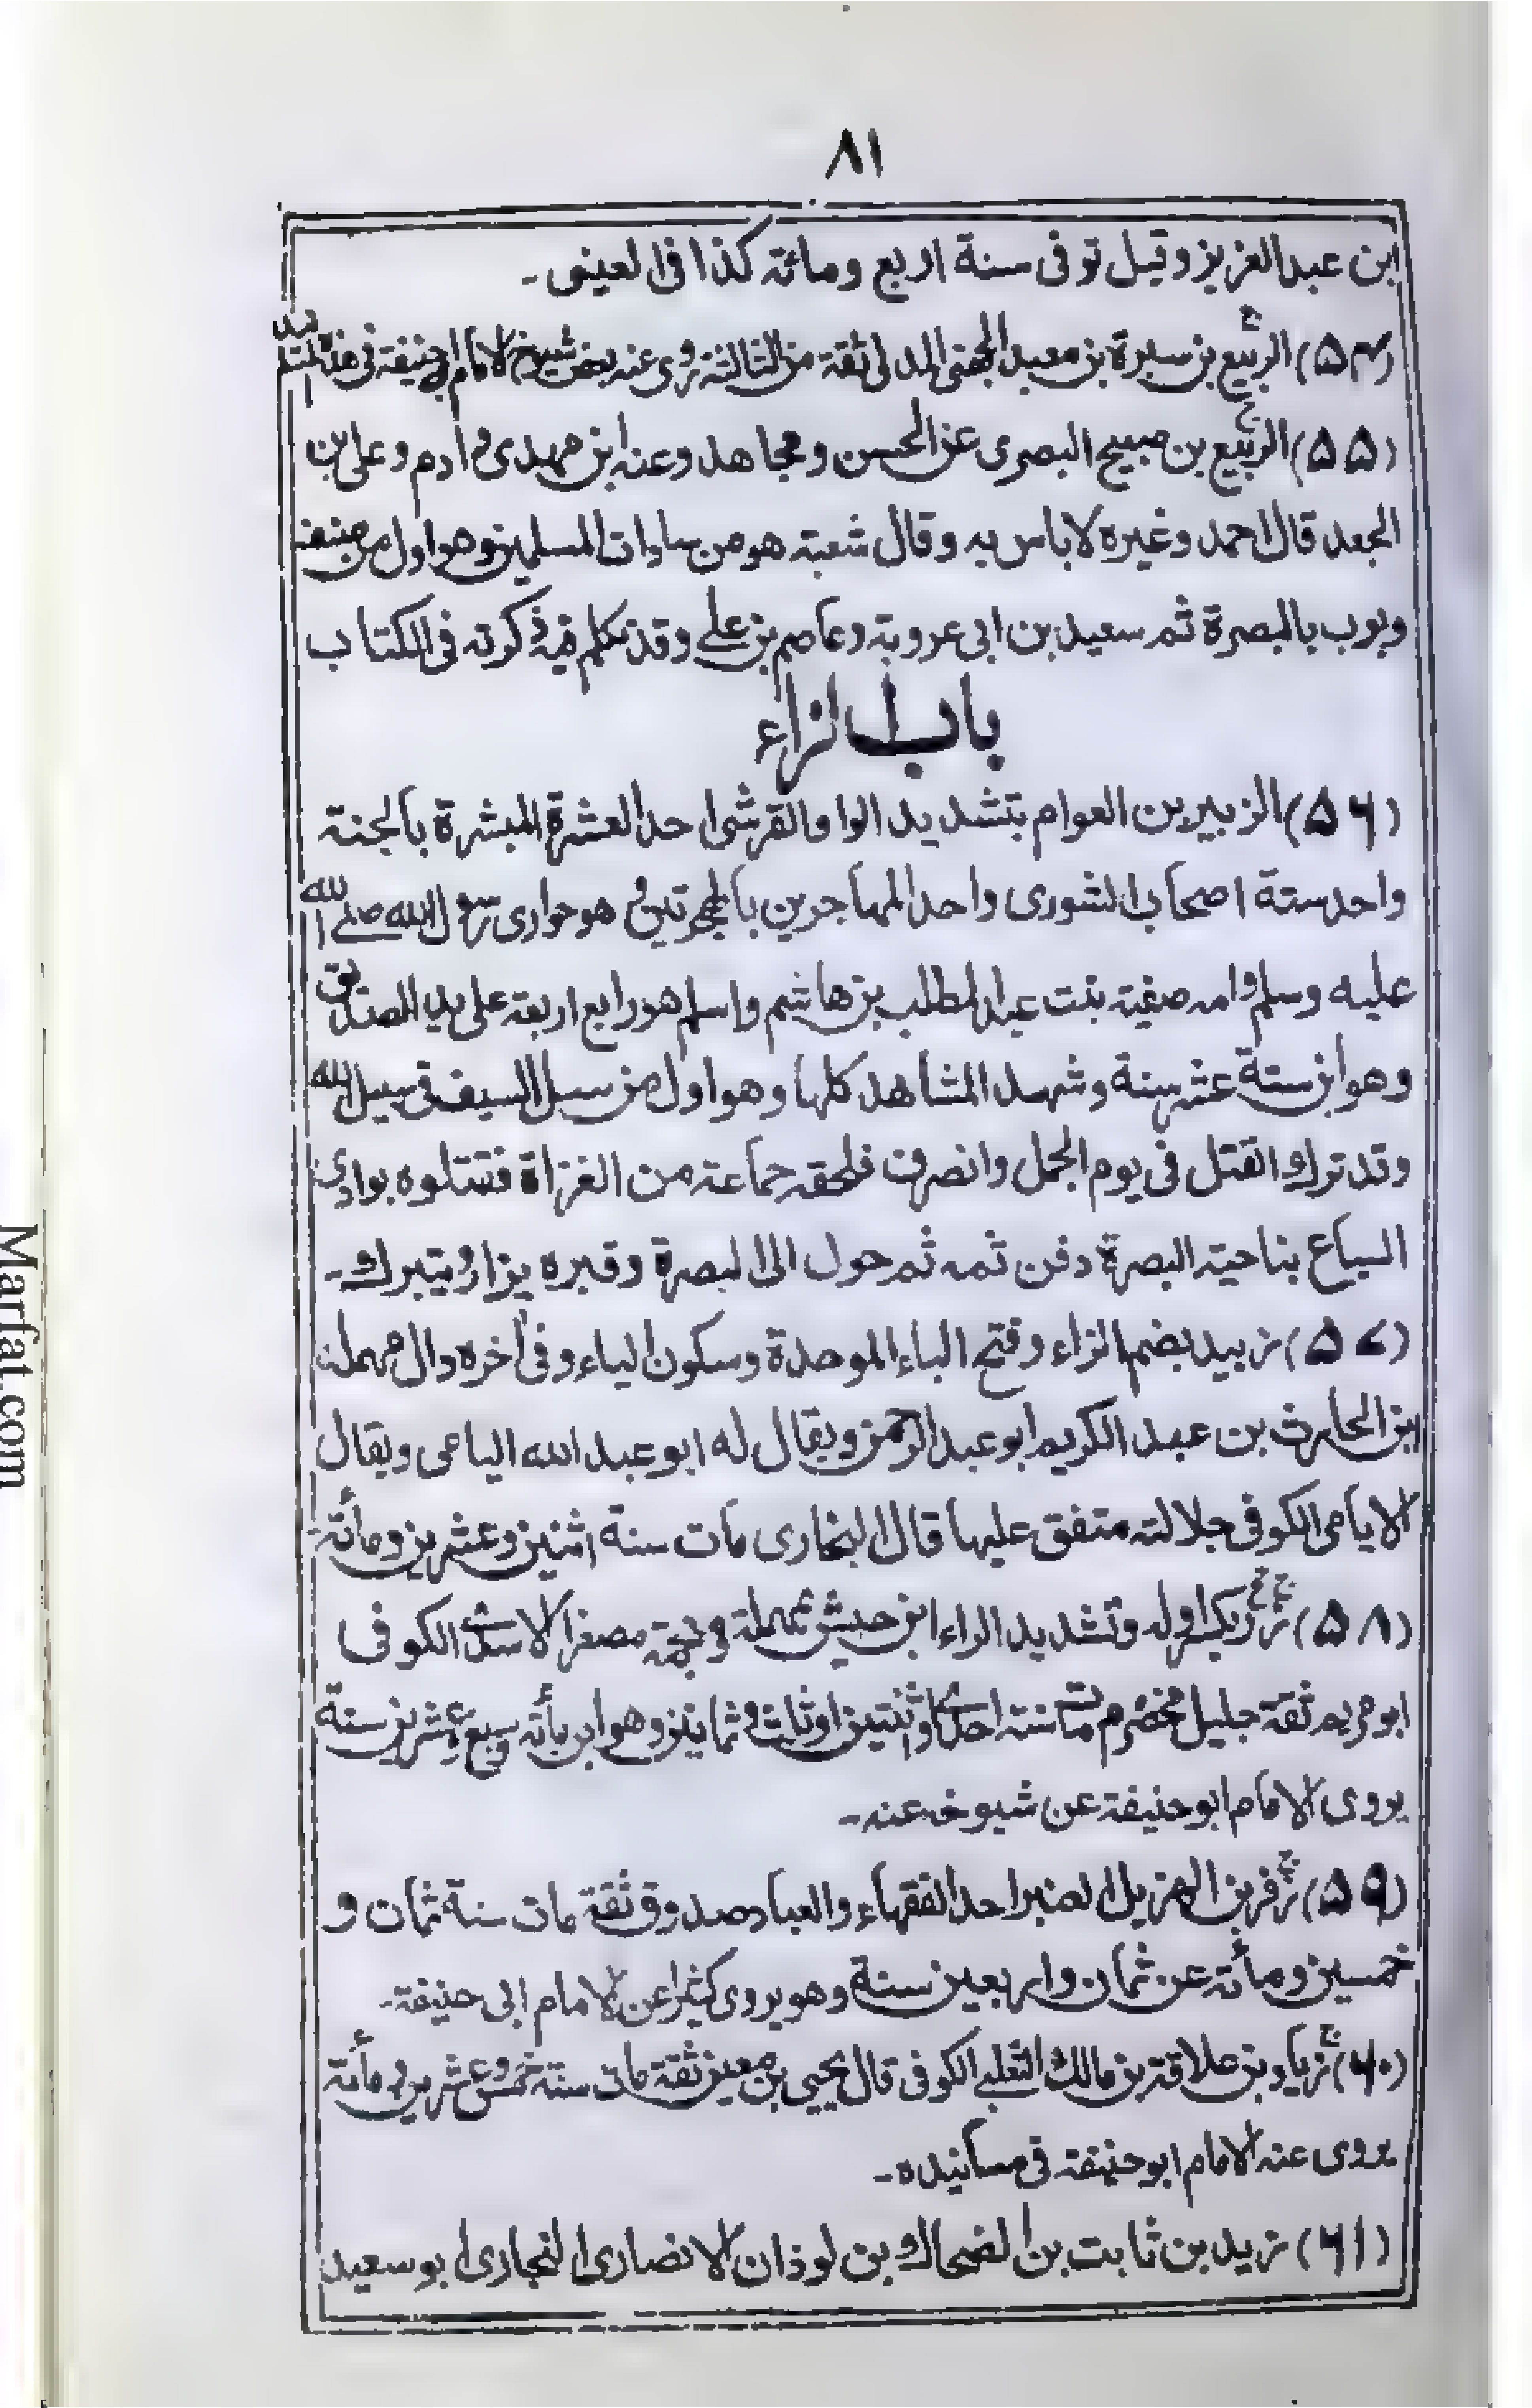 ٨١
ابن عبدالعزيز وقيل توفى سنة اربع ومائة كذا فى العينى۔
(۵۴) الربيع بن سبرة بن معبد الجهنى المدنى ثقة من الثالثة روى عنه بعض شيوخ الامام ابى حنيفة فى هذا المسند
(۵۵) الربيع بن صبيح البصرى عن الحسن ومجاهد وعنه ابن مهدى وآدم وعلى بن
الجعد قال احمد وغيره لاباس به وقال شعبة هو من سادات المسلمين وهو اول من صنف
وبوب بالبصرة ثم سعيد بن ابى عروبة وعاصم بن على وقد تكلم فيه ذكرته فى الكتاب
باب الزاء
(۵۶) الزبير بن العوام بتشديد الواو القرشى احد العشرة المبشرة بالجنة
واحد ستة اصحاب الشورى واحد المهاجرين بالهجرتين وهو حوارى رسول الله صلى الله
عليه وسلم وامه صفية بنت عبدالمطلب بن هاشم واسلم هو رابع اربعة على يد الصديق
وهو ابن ستة عشر سنة وشهد المشاهد كلها وهو اول من سل السيف فى سبيل الله
وقد ترك القتل فى يوم الجمل وانصرف فلحقه جماعة من الغزاة فقتلوه بوادى
السباع بناحية البصرة دفن ثمه ثم حول الى البصرة وقبره يزار ويتبرك۔
(۵۷) زبيد بضم الزاء وفتح الباء الموحدة وسكون الياء وفى آخره دال مهملة
ابن الحارث بن عبد الكريم ابو عبد الرحمن ويقال له ابو عبد الله اليامى ويقال
الايامى الكوفى جلالته متفق عليها قال البخارى مات سنة اثنين وعشرين ومأته
(۵۸) زر بكسر اوله وتشديد الراء ابن حبيش بمهملة و معجمة مصغرا الاسدى الكوفى
ابو مريم ثقة جليل مخضرم مات سنة احدى او اثنتين او ثلث و ثمانين وهو ابن مأته سبع وعشرين سنة
يروى الامام ابو حنيفة عن شيوخه عنه۔
(۵۹) زفر بن الهزيل العنبرا احد الفقهاء والعباد صدوق ثقة مات سنة ثمان و
خمسين ومأته عن ثمان واربعين سنة وهو يروى كثيرا عن الامام ابى حنيفة۔
(۶۰) زياد بن علاقة بن مالك الثعلبى الكوفى قال يحيى بن معين ثقة مات سنة خمس وعشرين ومأته
يروى عنه الامام ابو حنيفة فى مسانيده۔
(۶۱) زيد بن ثابت بن الضحاك بن لوذان الانصارى النجارى ابو سعيد
Marfat.com